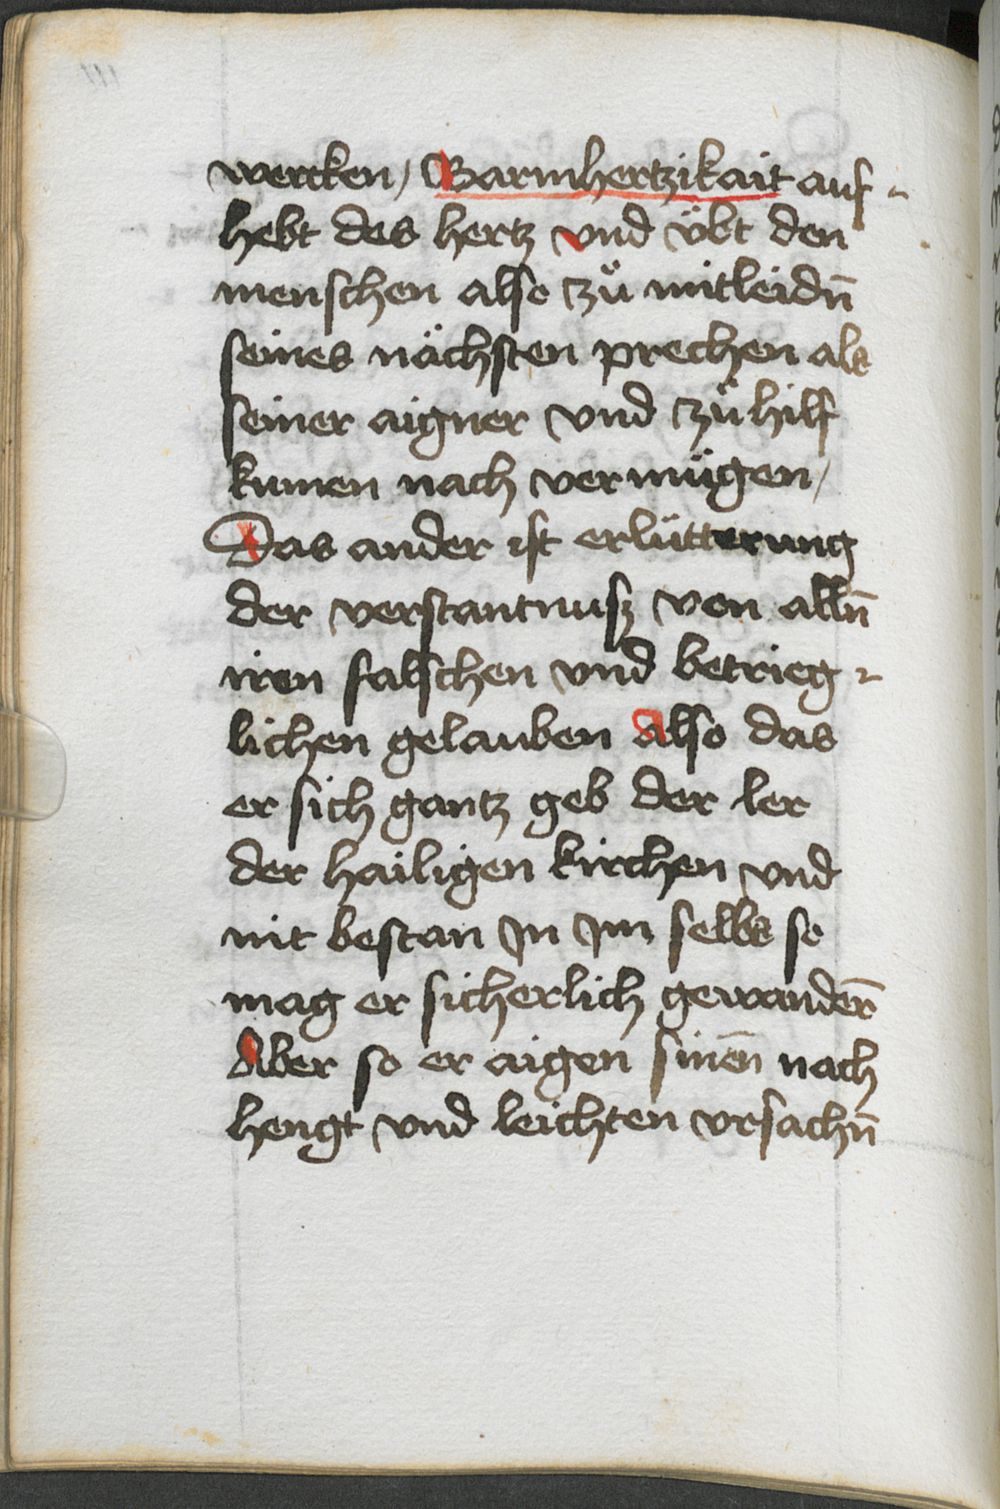 wercken / Barmhertzikait auf-
hebt des hertz vnd übt den
menschen also zuͦ mitleidn̄
seines nächsten prechen als
seiner aigner vnd zuͦ hilf
kumen nach vermügen /
Das ander ist erlütterung
der verstantnusz von alln̄
iren falschen vnd betrieg-
lichen gelauben Also das
er sich gantz geb der ler
der hailigen kirchen vnd
nit bestan Jn Jm selbs so
mag er sicherlich gewander̄
Aber so er aigen sinen̄ nach
hengt vnd leichten vrsachn̄